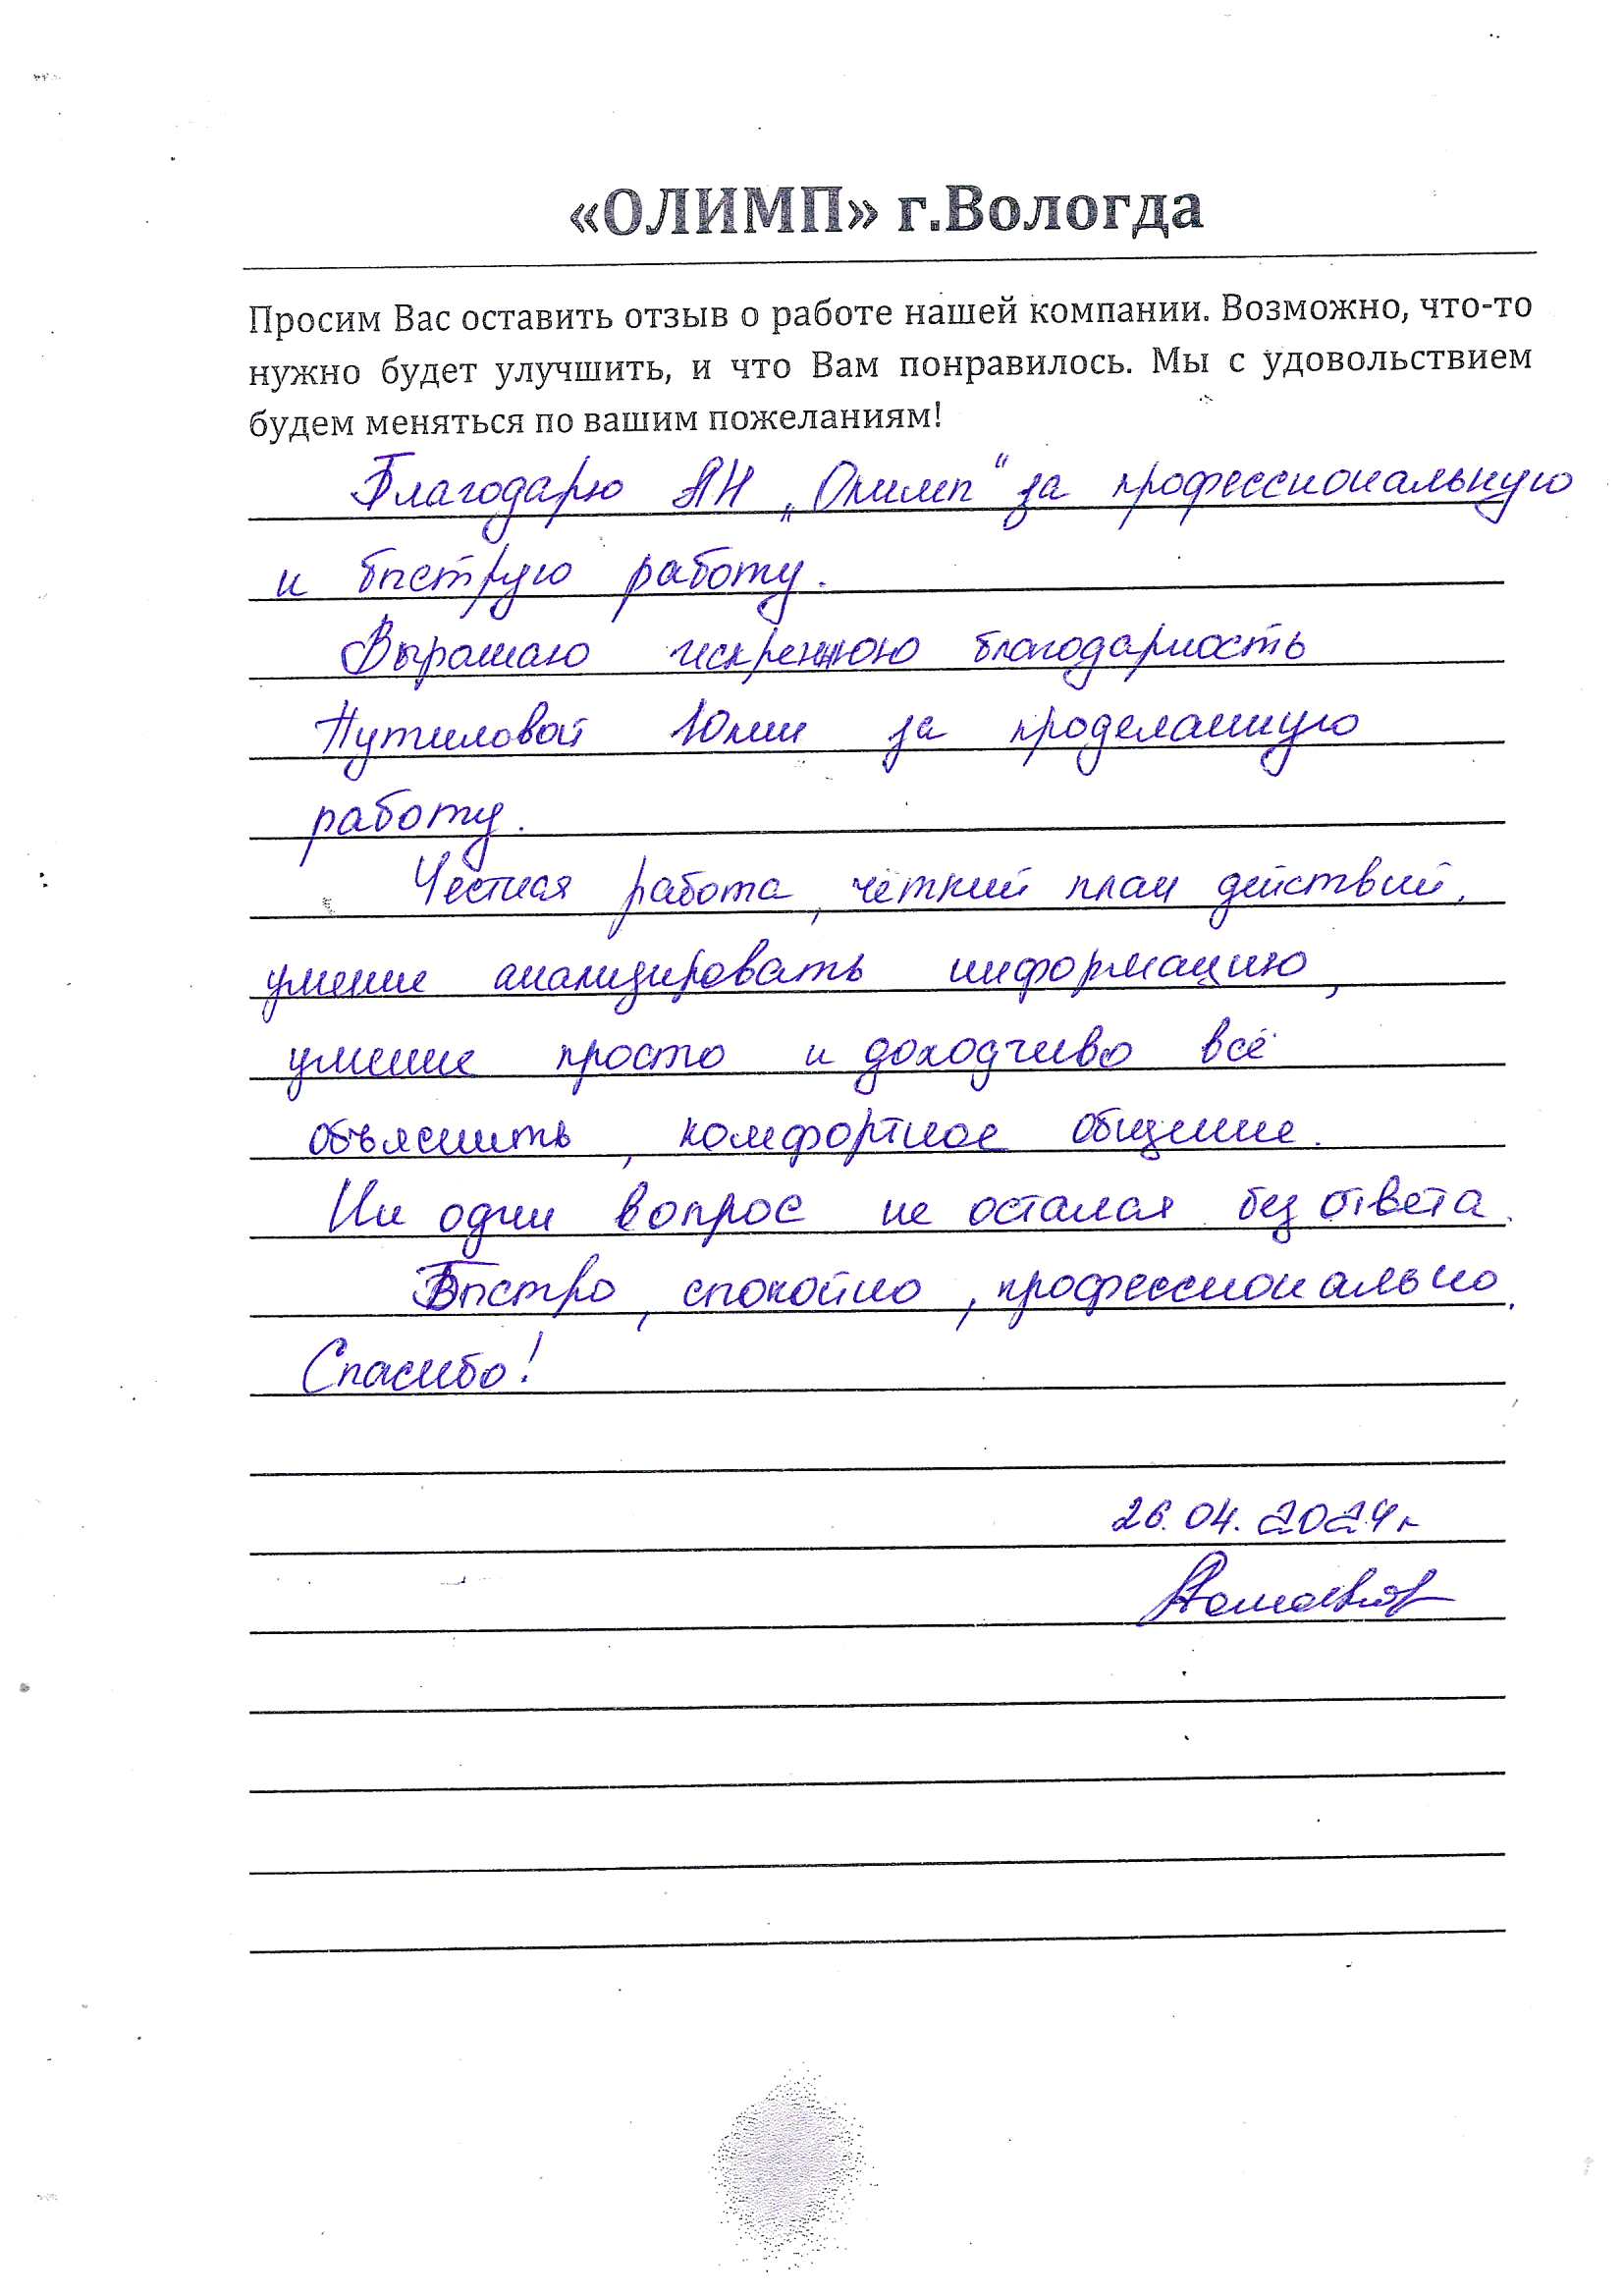 «ОЛИМП» г.Вологда
Просим Вас оставить отзыв о работе нашей компании. Возможно, что-то
нужно будет улучшить, и что Вам понравилось. Мы с удовольствием
будем меняться по вашим пожеланиям!
Благодарю АН „Олимп“ за профессиональную
и быструю работу.
Выражаю искреннюю благодарность
Путиловой Юлии за проделанную
работу.
Честная работа, чёткий план действий,
умение анализировать информацию,
умение просто и доходчиво всё
объяснить, комфортное общение.
Ни один вопрос не остался без ответа.
Быстро, спокойно, профессионально.
Спасибо!
26.04.2024г